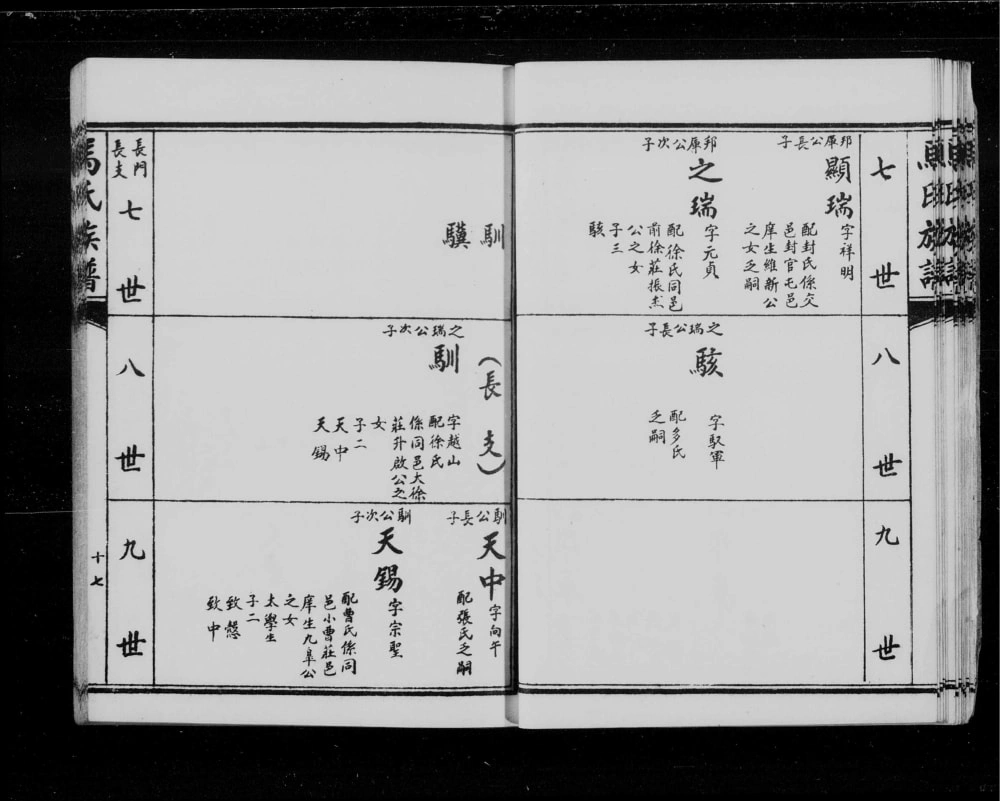 七世
邦庠公長子
顯瑞
字祥明
配封氏係交
邑封官屯邑
庠生維新公
之女乏嗣
邦庠公次子
之瑞
字元貞
配徐氏同邑
前徐莊振杰
公之女
子三
駭
八世
之瑞公長子
駭
字馭軍
配多氏
乏嗣
九世
馴
驥
(長支)
之瑞公次子
馴
字越山
配徐氏
係同邑大徐
莊升啟公之
女
子二
天中
天錫
馴公長子
天中
字向午
配張氏乏嗣
馴公次子
天錫
字宗聖
配曹氏係同
邑小曹莊邑
庠生九皋公
之女
太學生
子二
致愨
致中
長門
長支
七世
八世
九世
十七
馮氏族譜